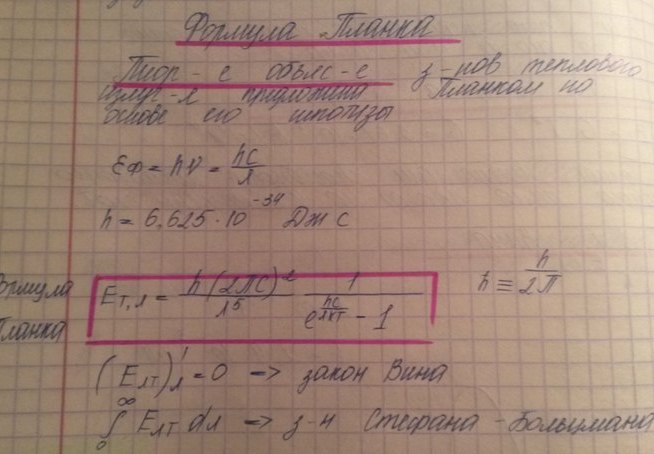 Формула Планка
Теор-е объяс-е з-нов теплового
излуч-я предложена Планком на
основе его гипотезы
εф = hν = hc/λ
h = 6,625·10^-34 Дж с
Формула Планка
E_T,λ = h(2πc)^2/λ^5 1/(e^(hc/λkT) - 1)
ħ ≡ h/2π
(E_λT)'_λ = 0 => закон Вина
∫_0^∞ E_λT dλ => з-н Стефана-Больцмана